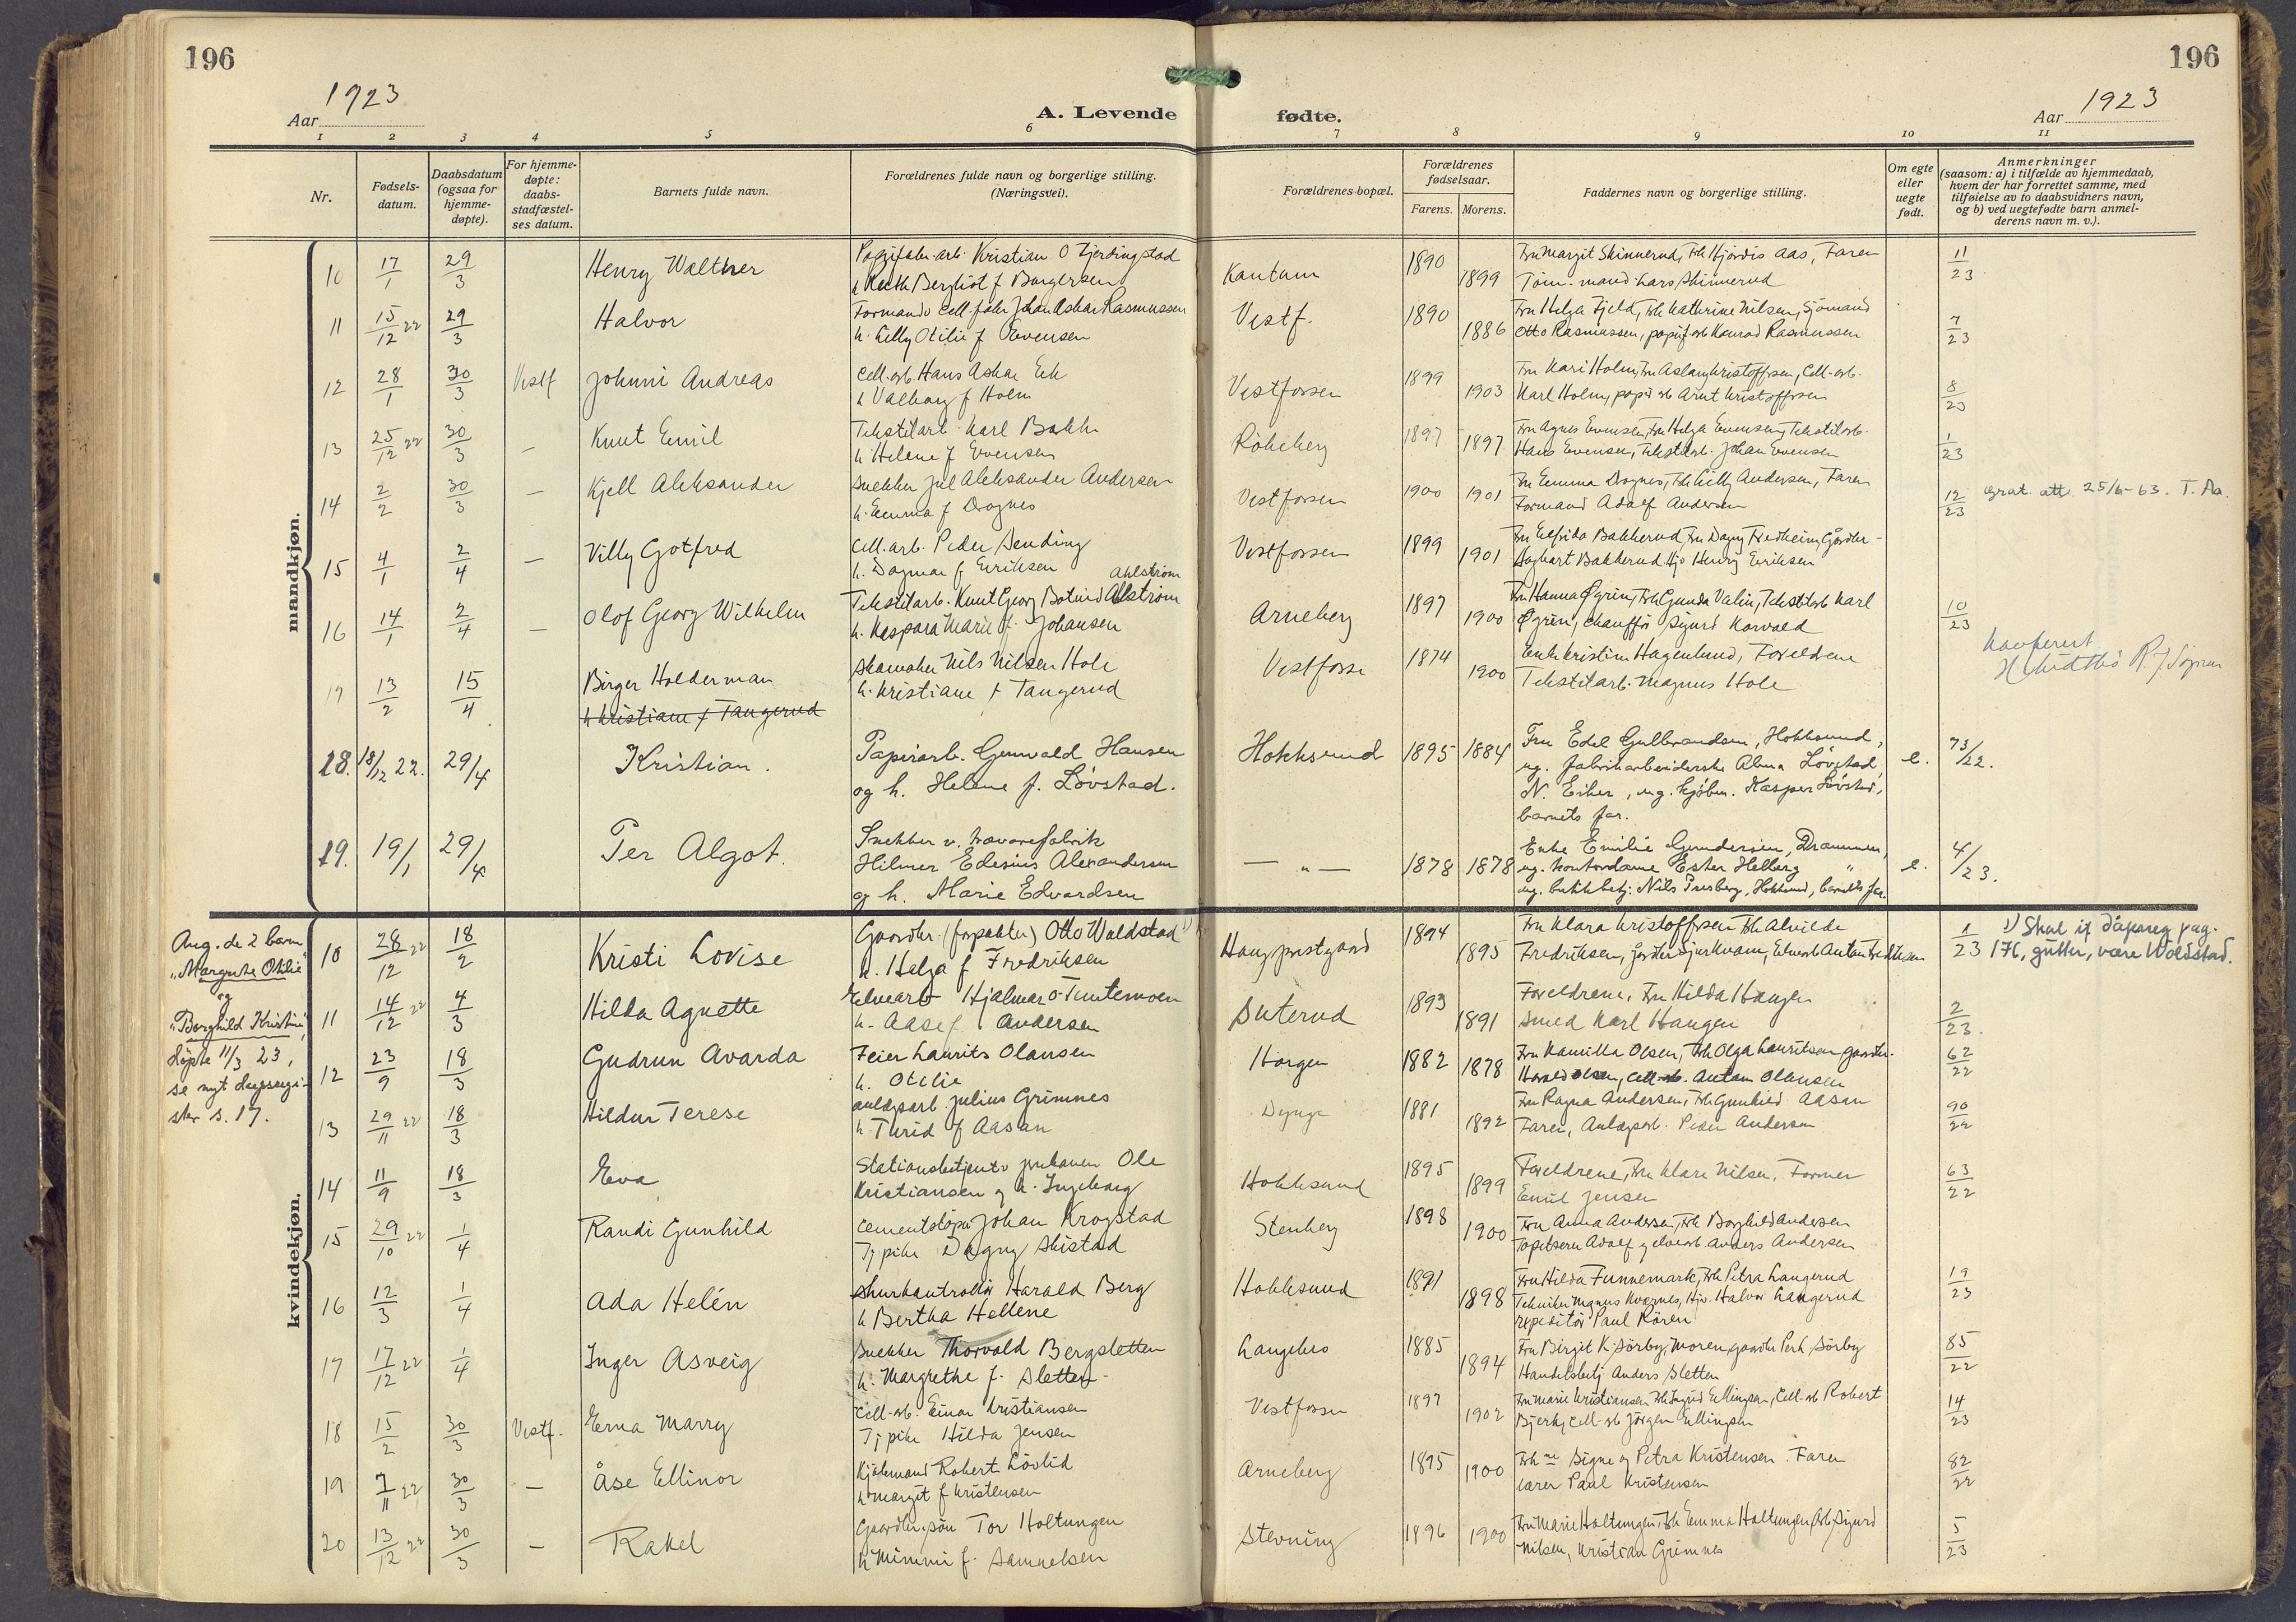 196
196
Aar 1923
A. Levende fødte.
Aar 1923
1 2 3 4 5 6 7 8 9 10 11
Nr.
Fødselsdatum.
Daabsdatum (ogsaa for hjemmedøpte).
For hjemmedøpte: daabsstadfæstelses datum.
Barnets fulde navn.
Forældrenes fulde navn og borgerlige stilling. (Næringsvei).
Forældrenes bopæl.
Forældrenes fødselsaar.
Farens. Morens.
Faddernes navn og borgerlige stilling.
Om egte eller uegte født.
Anmerkninger
(saasom: a) i tilfælde av hjemmedaab,
hvem der har forrettet samme, med
tilføielse av to daabsvidners navn,
og b) ved uegtefødte barn anmel-
derens navn m. v.).
mandkjøn.
10 17/1 29/3 Henry Walther Kristian O Tjerdingstad Kantum 1890 1899 Fru Margit Skinnerud, Frk Hjørdis Aas, Faren 11/23
Lars Skinnerud
11 15/12 22 29/3 Halvor Formand v Cell.fabr Johan Askar Rasmussen Vestf. 1890 1886 Fru Helga Fjeld, Frk Kathrine Nilsen, Sjömand 7/23
h. Otilie f Evensen Otto Rasmussen, Konrad Rasmussen
12 28/1 30/3 Vestf Johnni Andreas Cell.arb. Hans Askar Ek Vestfossen 1899 1903 Fru Kari Holm, Fru Aslaug Kristoffersen, Cell-arb. 8/23
h Valborg f Holm Karl Holm, papir arb Arnt Kristoffersen
13 25/12 22 30/3 – Knut Emil Tekstilarb. Karl Bakke Rökeberg 1897 1897 Fru Agnes Evensen, Fru Helga Evensen, Tekstilarb. 1/23
h. Helene f Evensen Hans Evensen, Tekstilarb. Johan Evensen
14 2/2 30/3 – Kjell Aleksander Snekker Aleksander Andersen Vestfossen 1900 1901 Fru Emma Dragnes, Frk Andersen, Faren 12/23 Grat. att. 25/6-63. T. Aa.
h. Emma f Dragnes Formand Adolf Andersen
15 4/1 2/4 – Villy Gotfred Cell.arb. Peder Sending Vestfossen 1899 1901 Fru Elfrida Bakkerud, Fru Dagny Fredheim, Gårdbr-
h. Dagmar f Eriksen Bakkerud Henry Eriksen
16 14/1 2/4 – Olof Georg Wilhelm Ahlström
Tekstilarb. Knut Georg Botvid Alström Arneberg 1897 1900 Fru Hanna Øgrin, Frk Gunda Valin, Tekstilarb Karl 10/23
h. Kaspara Marie f. Johansen Øgrin, chauffør Sigurd Korvald
Konferert
17 13/2 15/4 Birger Holderman Skomaker Nils Nilsen Hole Vestfosse 1874 1900 Enke Kristine Hagenlund, Foreldrene
h Kristiane f Tangerud h. Kristiane f Tangerud Tekstilarb. Magnus Hole
18. 18/12 22. 29/4 Kristian. Papirarb. Gunvald Hansen Hokksund 1895 1884 Fru Edel Gulbrandsen, Hokksund, e. 73/22.
og h. Helene f. Lövstad. ug. fabrikarbeiderske Alma Lövstad,
N. Eiker, ug. kjøbm. Kasper Lövstad,
barnets far.
19. 19/1 29/4 Per Algot. Snekker v. trævarefabrik —"— 1878 1878 Enke Emilie Gundersen, Drammen, e. 4/23.
Hilmer Edesius Alexandersen ug. kontordame Ester Helberg "
og h. Marie Edvardsen ug. butikbetj. Nils Presberg, Hokksund, barnets far.
kvindekjøn.
Ang. de 2 barn
"Margrete Otilie"
og
"Borghild Kristine",
døpte 11/3 23,
se nyt daapsregi-
ster s. 17.
10 28/12 22 18/2 Kristi Lovise Gaardbr. (forpakter) Otto Waldstad 1) Haug prestgaard 1894 1895 Fru Klara Kristoffersen Frk Alvilde 1/23 1) Skal if. dåpsreg. pag.
h. Helga f Fredriksen Fredriksen, Anton Fredriksen 176, gutter, være Woldstad.
11 14/12 22 4/3 Hilda Agnette Elvearb Hjalmar O Tuntemoen Suterud 1893 1891 Foreldrene, Fru Hilda Haugen 2/23.
h. Aase f Andersen Smed Karl Haugen
12 23/9 18/3 Gudrun Avarda Feier Laurits Olausen Horgen 1882 1878 Fru Kamilla Olsen, Frk Olga Lauritsen gaardbr. 62/22
h. Otilie Harald Olsen, Cell-arb. Anton Olausen
13 29/11 22 18/3 Hildur Terese anlægsarb. Julius Grimnes Dynge 1881 1892 Fru Ragna Andersen, Frk Gunhild Aasan 90/22
h. Turid f Aasan Faren, Anlægsarb. Peder Andersen
14 11/9 18/3 Eva Stationsbetjent v jernbanen Ole Hokksund 1895 1899 Foreldrene, Fru Klara Nilsen, Former 63/22
Kristiansen og h. Ingeborg Emil Jensen
15 29/10 22 1/4 Randi Gunhild Cementstøper Johan Krogstad Stenberg 1898 1900 Fru Anna Andersen, Frk Borghild Andersen
Tj pike Dagny Skistad Tapetserer Adolf og elvearb. Anders Andersen
16 12/3 1/4 Ada Helén Skurkontrollør Harald Berg Hokksund 1891 1898 Fru Hilda Funnemark, Frk Petra Langerud 19/23
h Bertha Hellene Tekniker Magnus Kvernes, Hjv. Halvor Langerud
expeditör Paul Rören
17 17/12 22 1/4 Inger Asveig Snekker Thorvald Bergsletten Langebro 1885 1894 Fru Birgit K. Sörby, Moren, gaardbr Per h. Sörby 85/22
h. Margrethe f. Sletten Handelsbetj Anders Sletten
18 15/2 30/3 Vestf. Erna Marry Cell-arb. Einar Kristiansen Vestfossen 1897 1902 Fru Marie Kristiansen Frk Ingrid Ellingsen, Cell-arb Robert 14/23
Tj pike Hilda Jensen Bjerke, Cell-arb Jörgen Ellingsen
19 7/11 22 30/3 – Åse Ellinor Kjøbmand Robert Lövlid Arneberg 1895 1900 Frk ne Signe og Petra Kristensen. Faren 82/22
h Margit f Kristensen lærer Paul Kristensen
20 13/12 22 30/3 – Rakel Gaardbr.søn Tor Holtungen Stevning 1896 1900 Fru Marie Holtungen, Frk Emma Holtungen, Arb. Sigurd 5/23
h Mimmi f. Samuelsen Nilsen, Kristian Grimnes